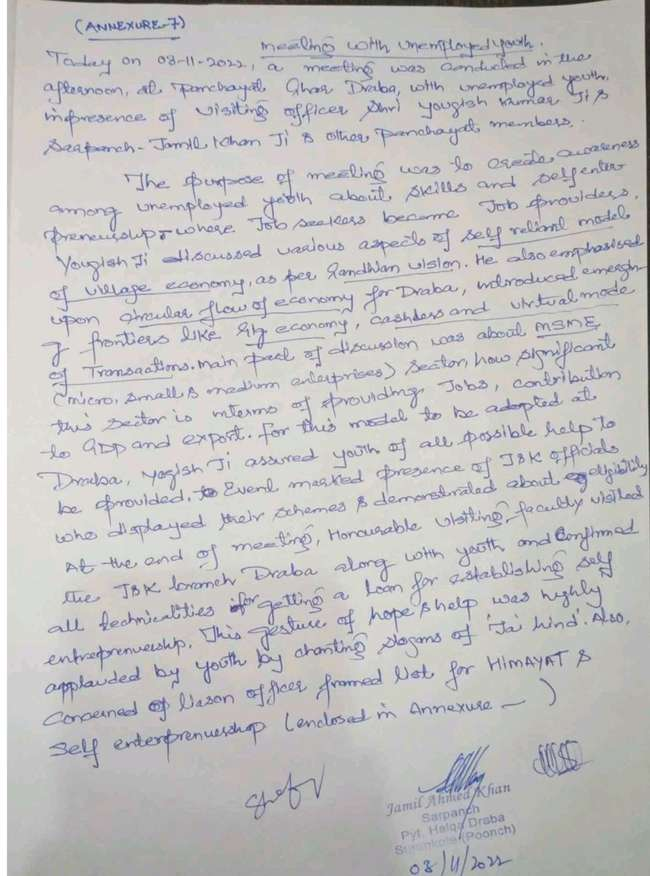 (ANNEXURE-7)
meeting with unemployed youth.
Today on 08-11-2022, a meeting was conducted in the
afternoon, at Panchayat Ghar Draba, with unemployed youth,
inpresence of visiting officer Shri Yougish Kumar Ji &
Sarpanch - Jamil Khan Ji & other panchayat members.
The purpose of meeting was to create awareness
among unemployed youth about skills and self enter-
preneurship where Job seekers become Job providers.
Yougish Ji discussed various aspects of self reliant model
of village economy, as per Gandhian vision. He also emphasised
upon circular flow of economy for Draba, introduced emergin-
g frontiers like Gig economy, cashless and virtual mode
of Transactions. main part of discussion was about MSME
(micro, small & medium enterprises) Sector, how significant
this sector is interms of providing Jobs, contribution
to GDP and export. for this model to be adopted at
Draba, Yogish Ji assured youth of all possible help to
be provided. Event marked presence of J&K officials
who displayed their schemes & demonstrated about eligibility
At the end of meeting, Honourable visiting faculty visited
the J&K branch Draba along with youth and confirmed
all technicalities for getting a loan for establishing self
entreprenuership. This gesture of hope & help was highly
applauded by youth by chanting slogans of 'Jai hind'. Also,
concerned Liason officer framed list for HIMAYAT &
Self enterprenuership (enclosed in Annexure - )
Jamil Ahmed Khan
Sarpanch
Pyt. Halqa Draba
Surankote (Poonch)
08/11/2022